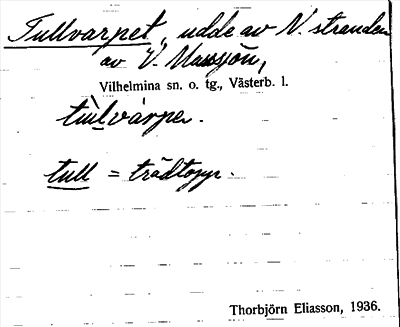 Tullvarpet, udde av N. stranden
av V. Marssjön,
Vilhelmina sn. o. tg., Västerb. l.
tùlvárpe.
tull = trädtopp.
Thorbjörn Eliasson, 1936.